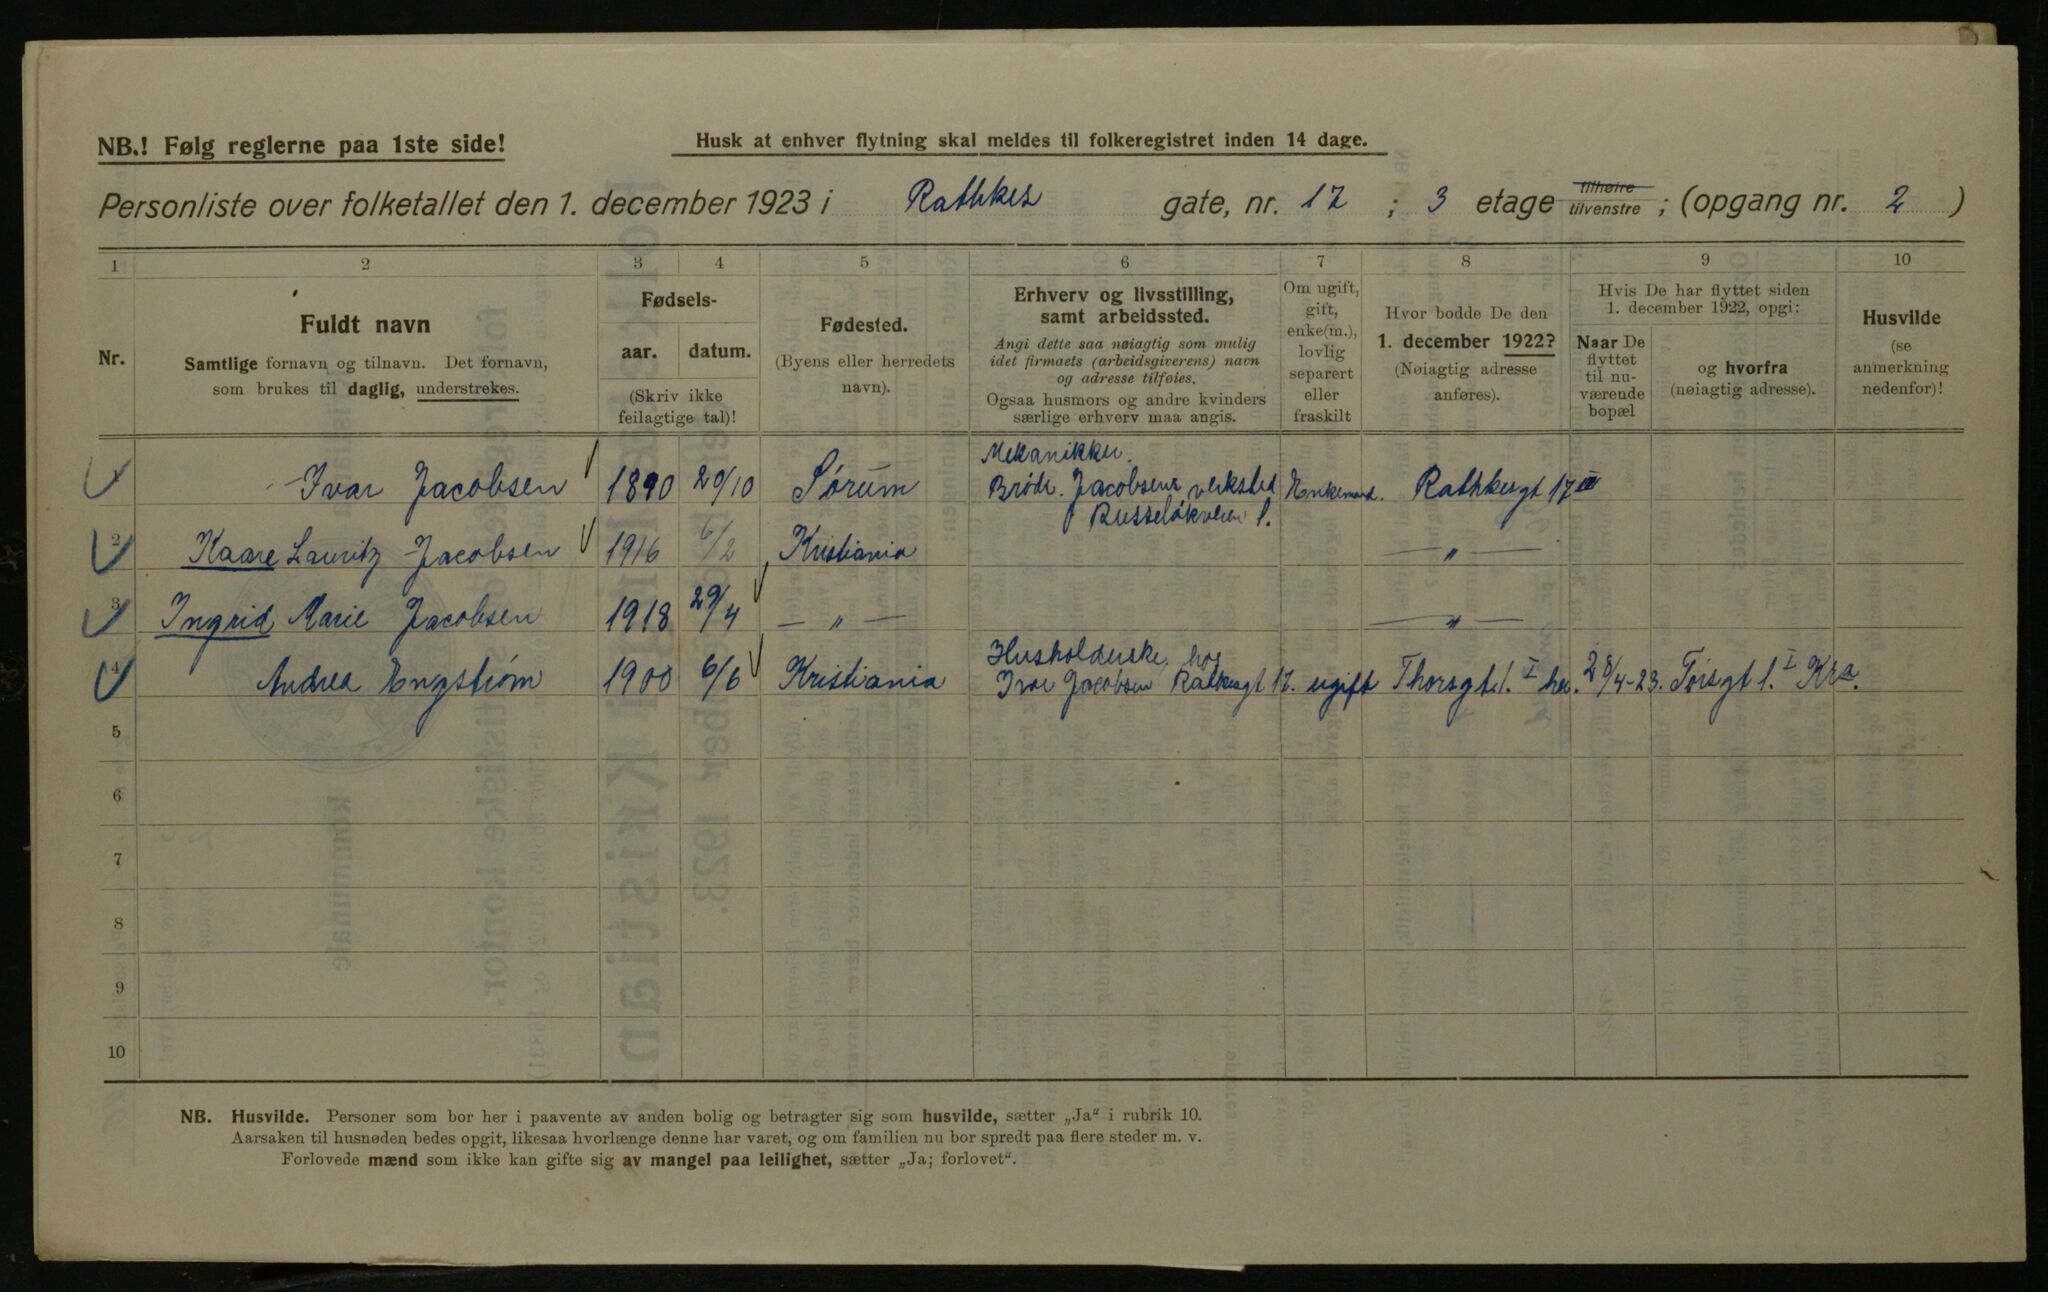 NB.! Følg reglerne paa 1ste side!
Husk at enhver flytning skal meldes til folkeregistret inden 14 dage.
Personliste over folketallet den 1. december 1923 i Rathkes gate, nr. 17 ; 3 etage tilhøire tilvenstre ; (opgang nr. 2 )
1 2 3 4 5 6 7 8 9 10
Nr.
Fuldt navn
Samtlige fornavn og tilnavn. Det fornavn,
som brukes til daglig, understrekes.
Fødsels-
aar. datum.
(Skriv ikke
feilagtige tal)!
Fødested.
(Byens eller herredets
navn).
Erhverv og livsstilling,
samt arbeidssted.
Angi dette saa nøiagtig som mulig
idet firmaets (arbeidsgiverens) navn
og adresse tilføies.
Ogsaa husmors og andre kvinders
særlige erhverv maa angis.
Om ugift,
gift,
enke(m.),
lovlig
separert
eller
fraskilt
Hvor bodde De den
1. december 1922?
(Nøiagtig adresse
anføres).
Hvis De har flyttet siden
1. december 1922, opgi:
Naar De
flyttet
til nu-
værende
bopæl
og hvorfra
(nøiagtig adresse).
Husvilde
(se
anmerkning
nedenfor)!
Mekanikker.
1 Ivar Jacobsen 1890 20/10 Sørum Brødr. Jacobsens verksted Enkemand. Rathkesgt 17 III
Russeløkveien 1.
2 Kaare Lauritz Jacobsen 1916 6/2 Kristiania — " —
3 Ingrid Marie Jacobsen 1918 29/4 — " — — " —
Husholderske hos
4 Andrea Engstrøm 1900 6/6 Kristiania Ivar Jacobsen Rathkesgt 17. ugift Thorsgt 1. I her. 28/4-23. Torsgt 1. I Kra.
5
6
7
8
9
10
NB. Husvilde. Personer som bor her i paavente av anden bolig og betragter sig som husvilde, sætter „Ja" i rubrik 10.
Aarsaken til husnøden bedes opgit, likesaa hvorlænge denne har varet, og om familien nu bor spredt paa flere steder m. v.
Forlovede mænd som ikke kan gifte sig av mangel paa leilighet, sætter „Ja; forlovet".